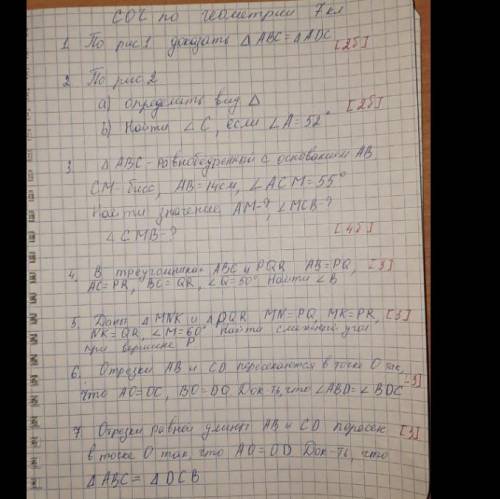 СОЧ по геометрии 7 кл
1. По рис 1 доказать △ ABC = △ADC
[2б]
2 По рис. 2
a) определить вид △
b) Найти ∠C, если ∠A = 52° [2б]
3. △ ABC - равнобедренный с основанием AB
CM - бисс, AB = 14см, ∠ACM = 55°
Найти значение AM=?, ∠MCB=?
∠CMB=?
[4б]
4. В треугольниках ABC и PQR AB = PQ, [3]
AC = PR, BC = QR, ∠Q = 50° Найти ∠B
5. Даны △MNK и △PQR MN = PQ MK = PR, [3]
NK = QR, ∠M = 60° Найти смежный угол
при вершине P
6. Отрезки AB и CD пересекаются в точке O так,
что AO = OC, BO = DO Док-ть, что ∠ABD = ∠BDC [3]
7 Отрезки равной длины AB и CD пересек [3]
в точке O так что AO = OD Док-ть, что
△ABC = △DCB